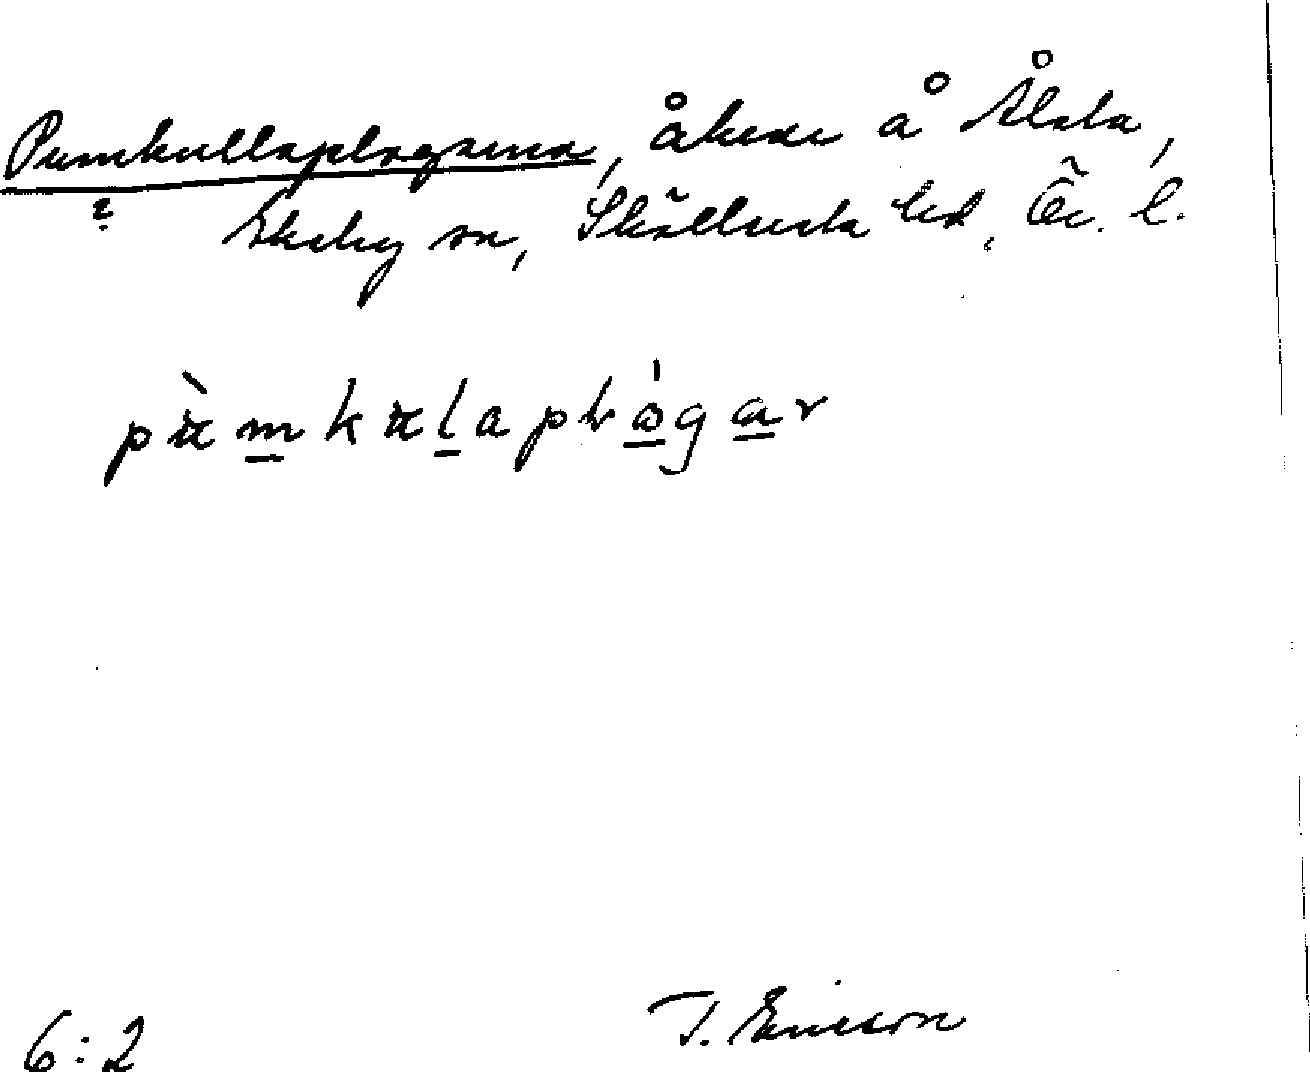 Pumkullaplogarna, åkrar å Ålsta,
? Ekeby sn, Sköllersta hd, Ör. l.
pumkulaplogar
6:2 T. Ericson